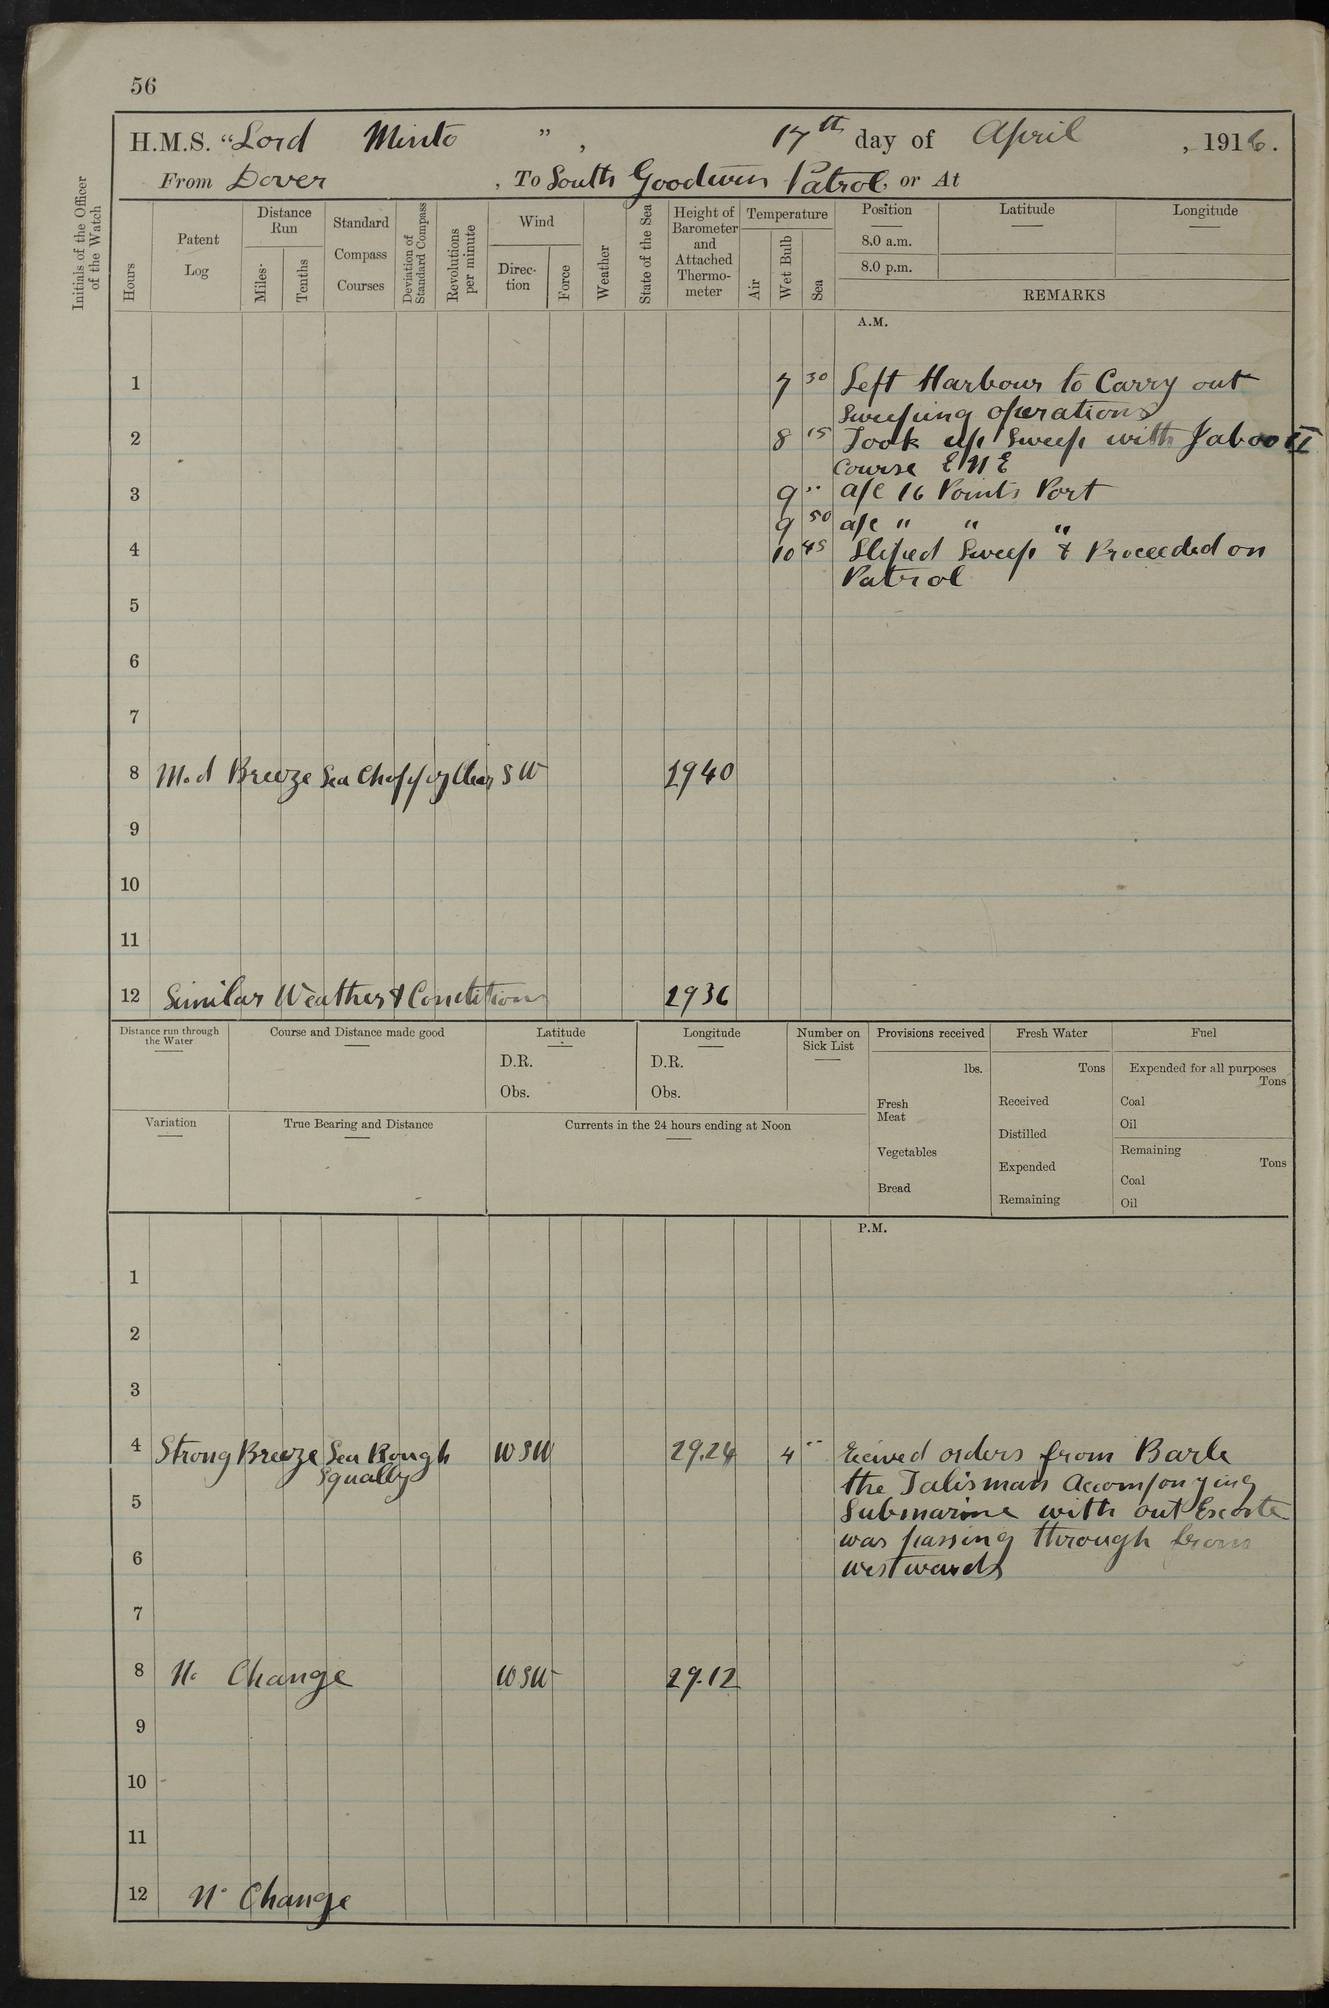 56
H.M.S. "Lord Minto", 17th day of April, 1916.
From Dover, To South Goodwin Patrol, or At
Initials of the Officer of the Watch
Hours
Patent Log
Distance Run
Miles
Tenths
Standard Compass Courses
Deviation of Standard Compass
Revolutions per minute
Wind
Direction
Force
Weather
State of the Sea
Height of Barometer and Attached Thermometer
Temperature
Air
Wet Bulb
Sea
Position
Latitude
Longitude
8.0 a.m.
8.0 p.m.
REMARKS
A.M.
1 7 30 Left Harbour to Carry out
sweeping operations
2 8 15 Took up Sweep with Jaboo II
Course E N E
3 9 " a/c 16 Points Port
9 50 a/c " " "
4 10 45 Sliped Sweep & Proceeded on
Patrol
5
6
7
8 Mod Breeze Sea Choppy Clear SW 2940
9
10
11
12 Similar Weather & Conditions 2936
Distance run through the Water
Course and Distance made good
Latitude
D.R.
Obs.
Longitude
D.R.
Obs.
Number on Sick List
Provisions received
lbs.
Fresh Meat
Vegetables
Bread
Fresh Water
Tons
Received
Distilled
Expended
Remaining
Fuel
Expended for all purposes
Tons
Coal
Oil
Remaining
Tons
Coal
Oil
Variation
True Bearing and Distance
Currents in the 24 hours ending at Noon
P.M.
1
2
3
4 Strong Breeze Sea Rough WSW 29.24 4 " Recived orders from Barle
Squally
the Talisman Accomponying
5 Submarine with out Escorte
was passing through from
6 westwards
7
8 No Change WSW 29.12
9
10
11
12 No Change